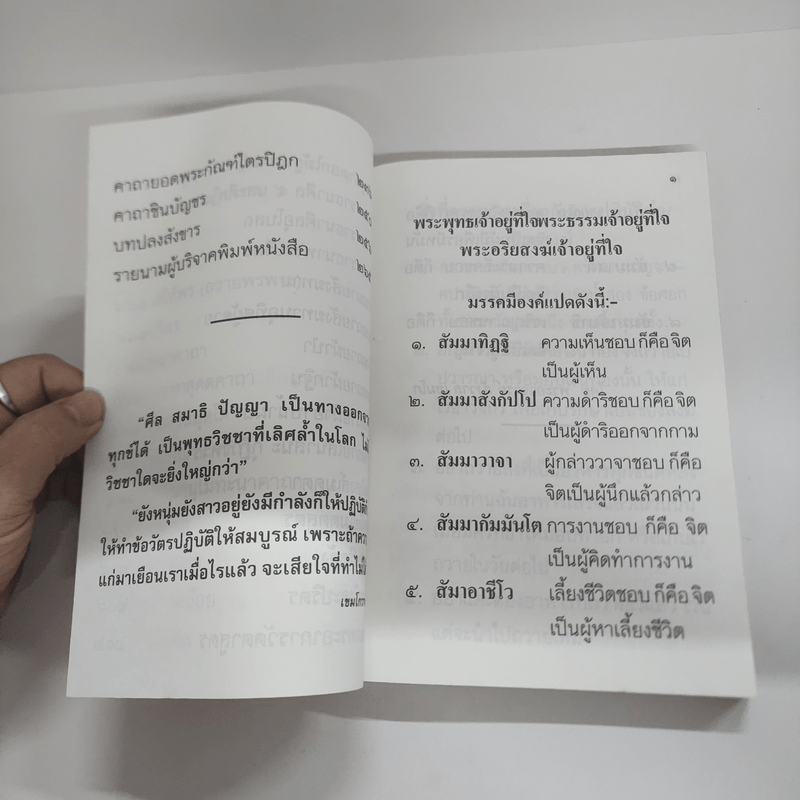 คาถายอดพระกัณฑ์ไตรปิฎก
คาถาชินบัญชร
บทปลงสังขาร
รายนามผู้บริจาคพิมพ์หนังสือ
“ศีล สมาธิ ปัญญา เป็นทางออกจาก
ทุกข์ได้ เป็นพุทธวิชชาที่เลิศล้ำในโลก ไม่
วิชชาใดจะยิ่งใหญ่กว่า”
“ยังหนุ่มยังสาวอยู่ยังมีกำลังก็ให้ปฏิบัติ
ให้ทำข้อวัตรปฏิบัติให้สมบูรณ์ เพราะถ้า
แก่มาเยือนเราเมื่อไรแล้ว จะเสียใจที่ทำไม่
๑
พระพุทธเจ้าอยู่ที่ใจพระธรรมเจ้าอยู่ที่ใจ
พระอริยสงฆ์เจ้าอยู่ที่ใจ
มรรคมีองค์แปดดังนี้:-
๑. สัมมาทิฏฐิ ความเห็นชอบ ก็คือ จิต
เป็นผู้เห็น
๒. สัมมาสังกัปโป ความดำริชอบ ก็คือ จิต
เป็นผู้ดำริออกจากกาม
๓. สัมมาวาจา ผู้กล่าววาจาชอบ ก็คือ
จิตเป็นผู้นึกแล้วกล่าว
๔. สัมมากัมมันโต การงานชอบ ก็คือ จิต
เป็นผู้คิดทำการงาน
๕. สัมาอาชีโว เลี้ยงชีวิตชอบ ก็คือ จิต
เป็นผู้หาเลี้ยงชีวิต